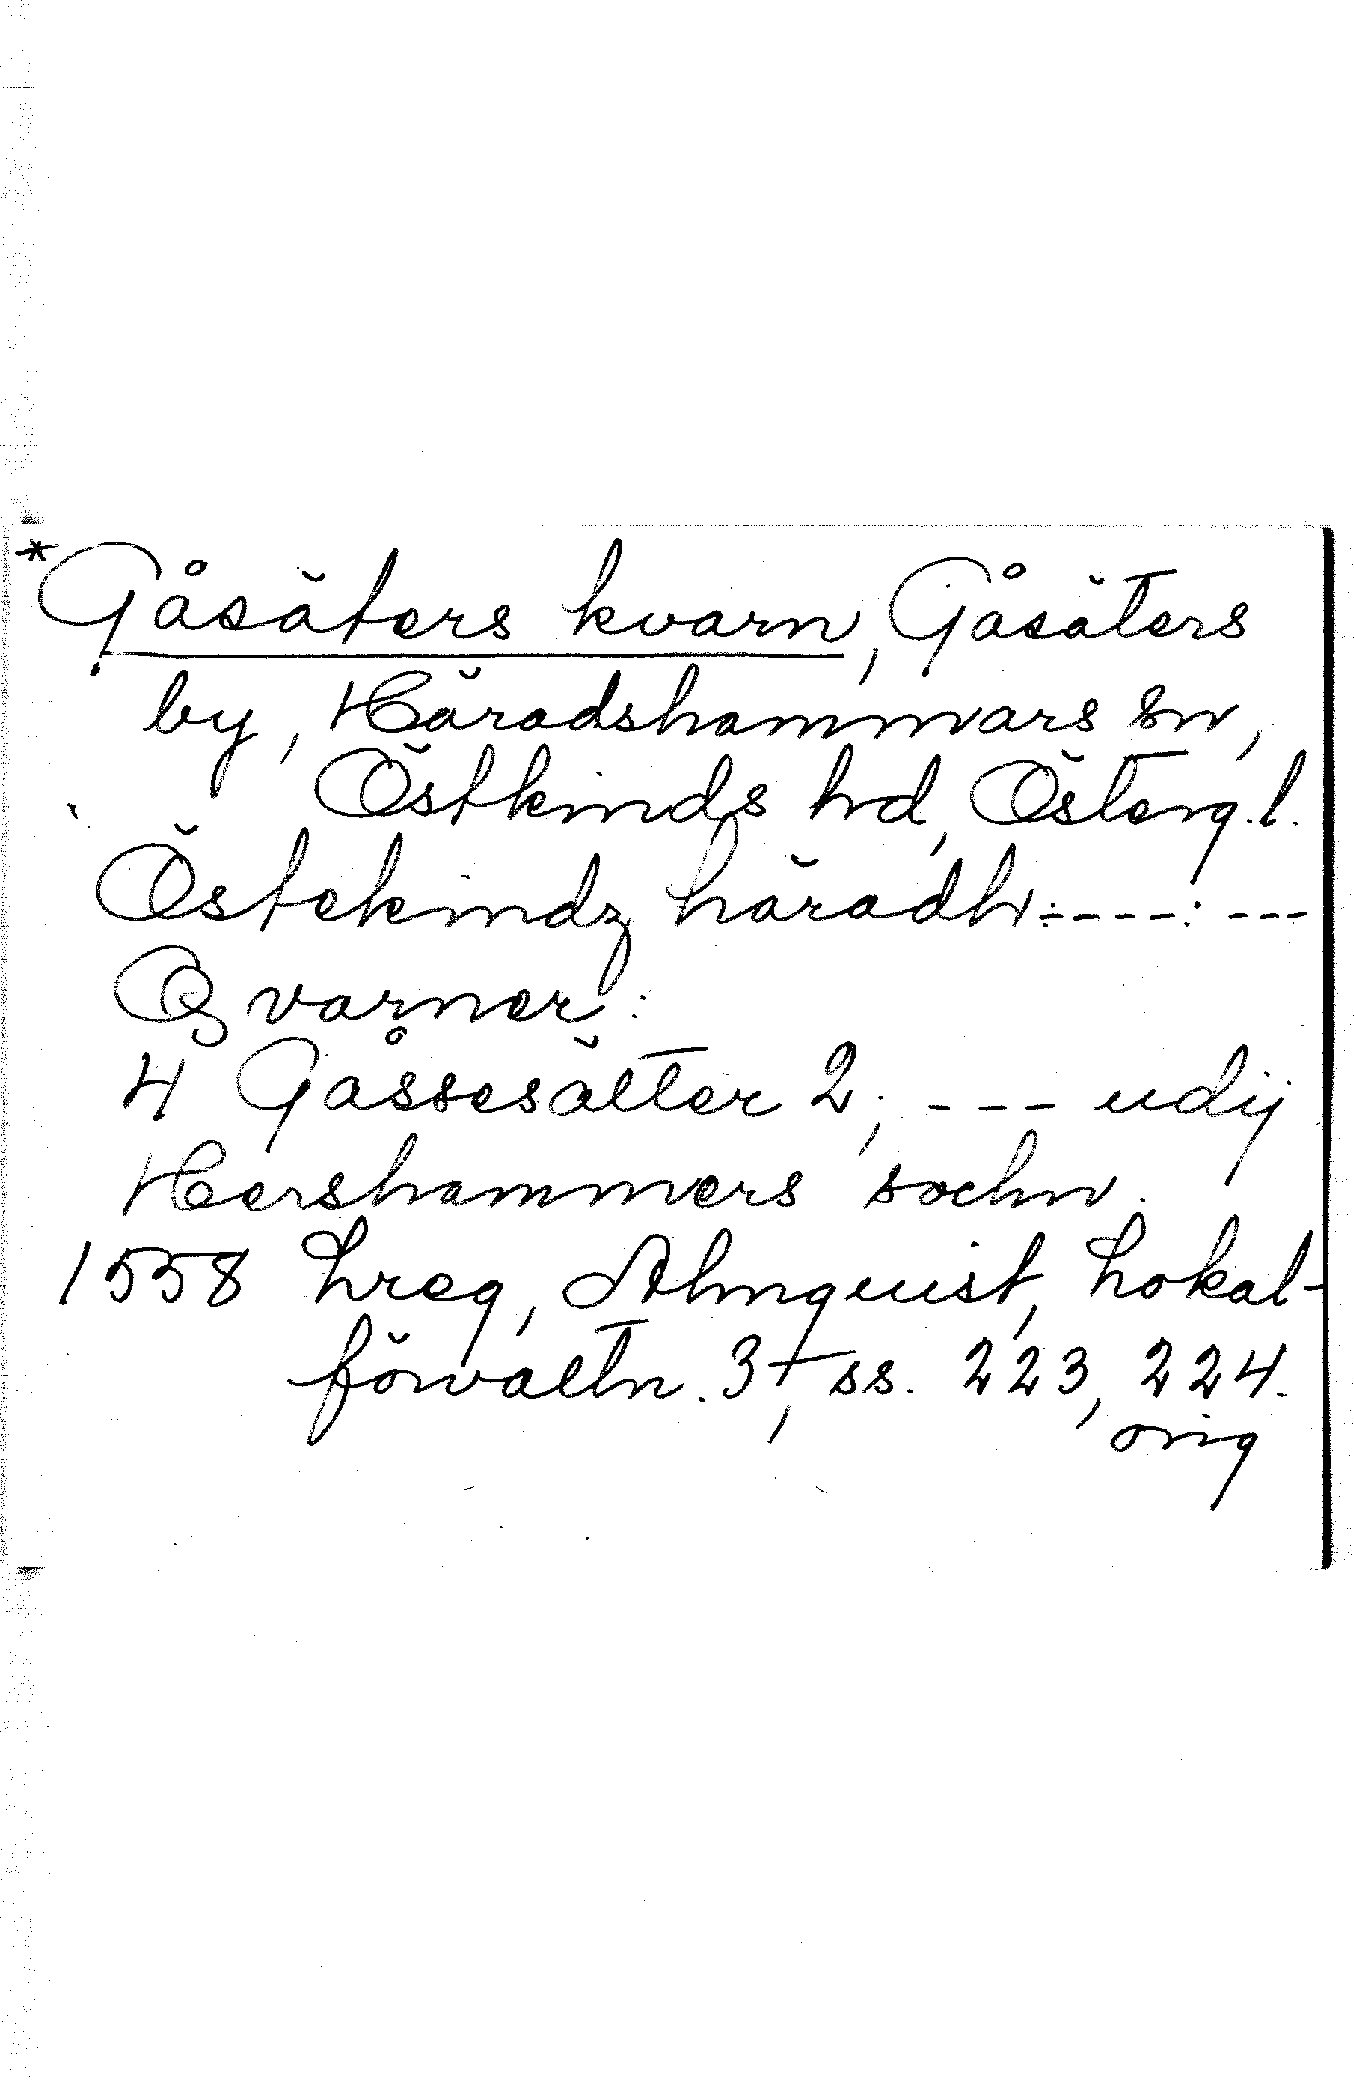 *Gåsäters kvarn, Gåsäters
by, Häradshammars sn,
Östkinds hd, Österg.l.
Östekindz häradh:----:---
Qvarner:
4 Gåssesätter 2; --- udij
Hershammers sochn.
1558 Lreg, Almquist, Lokal-
förvaltn. 3t, ss. 223, 224.
orig